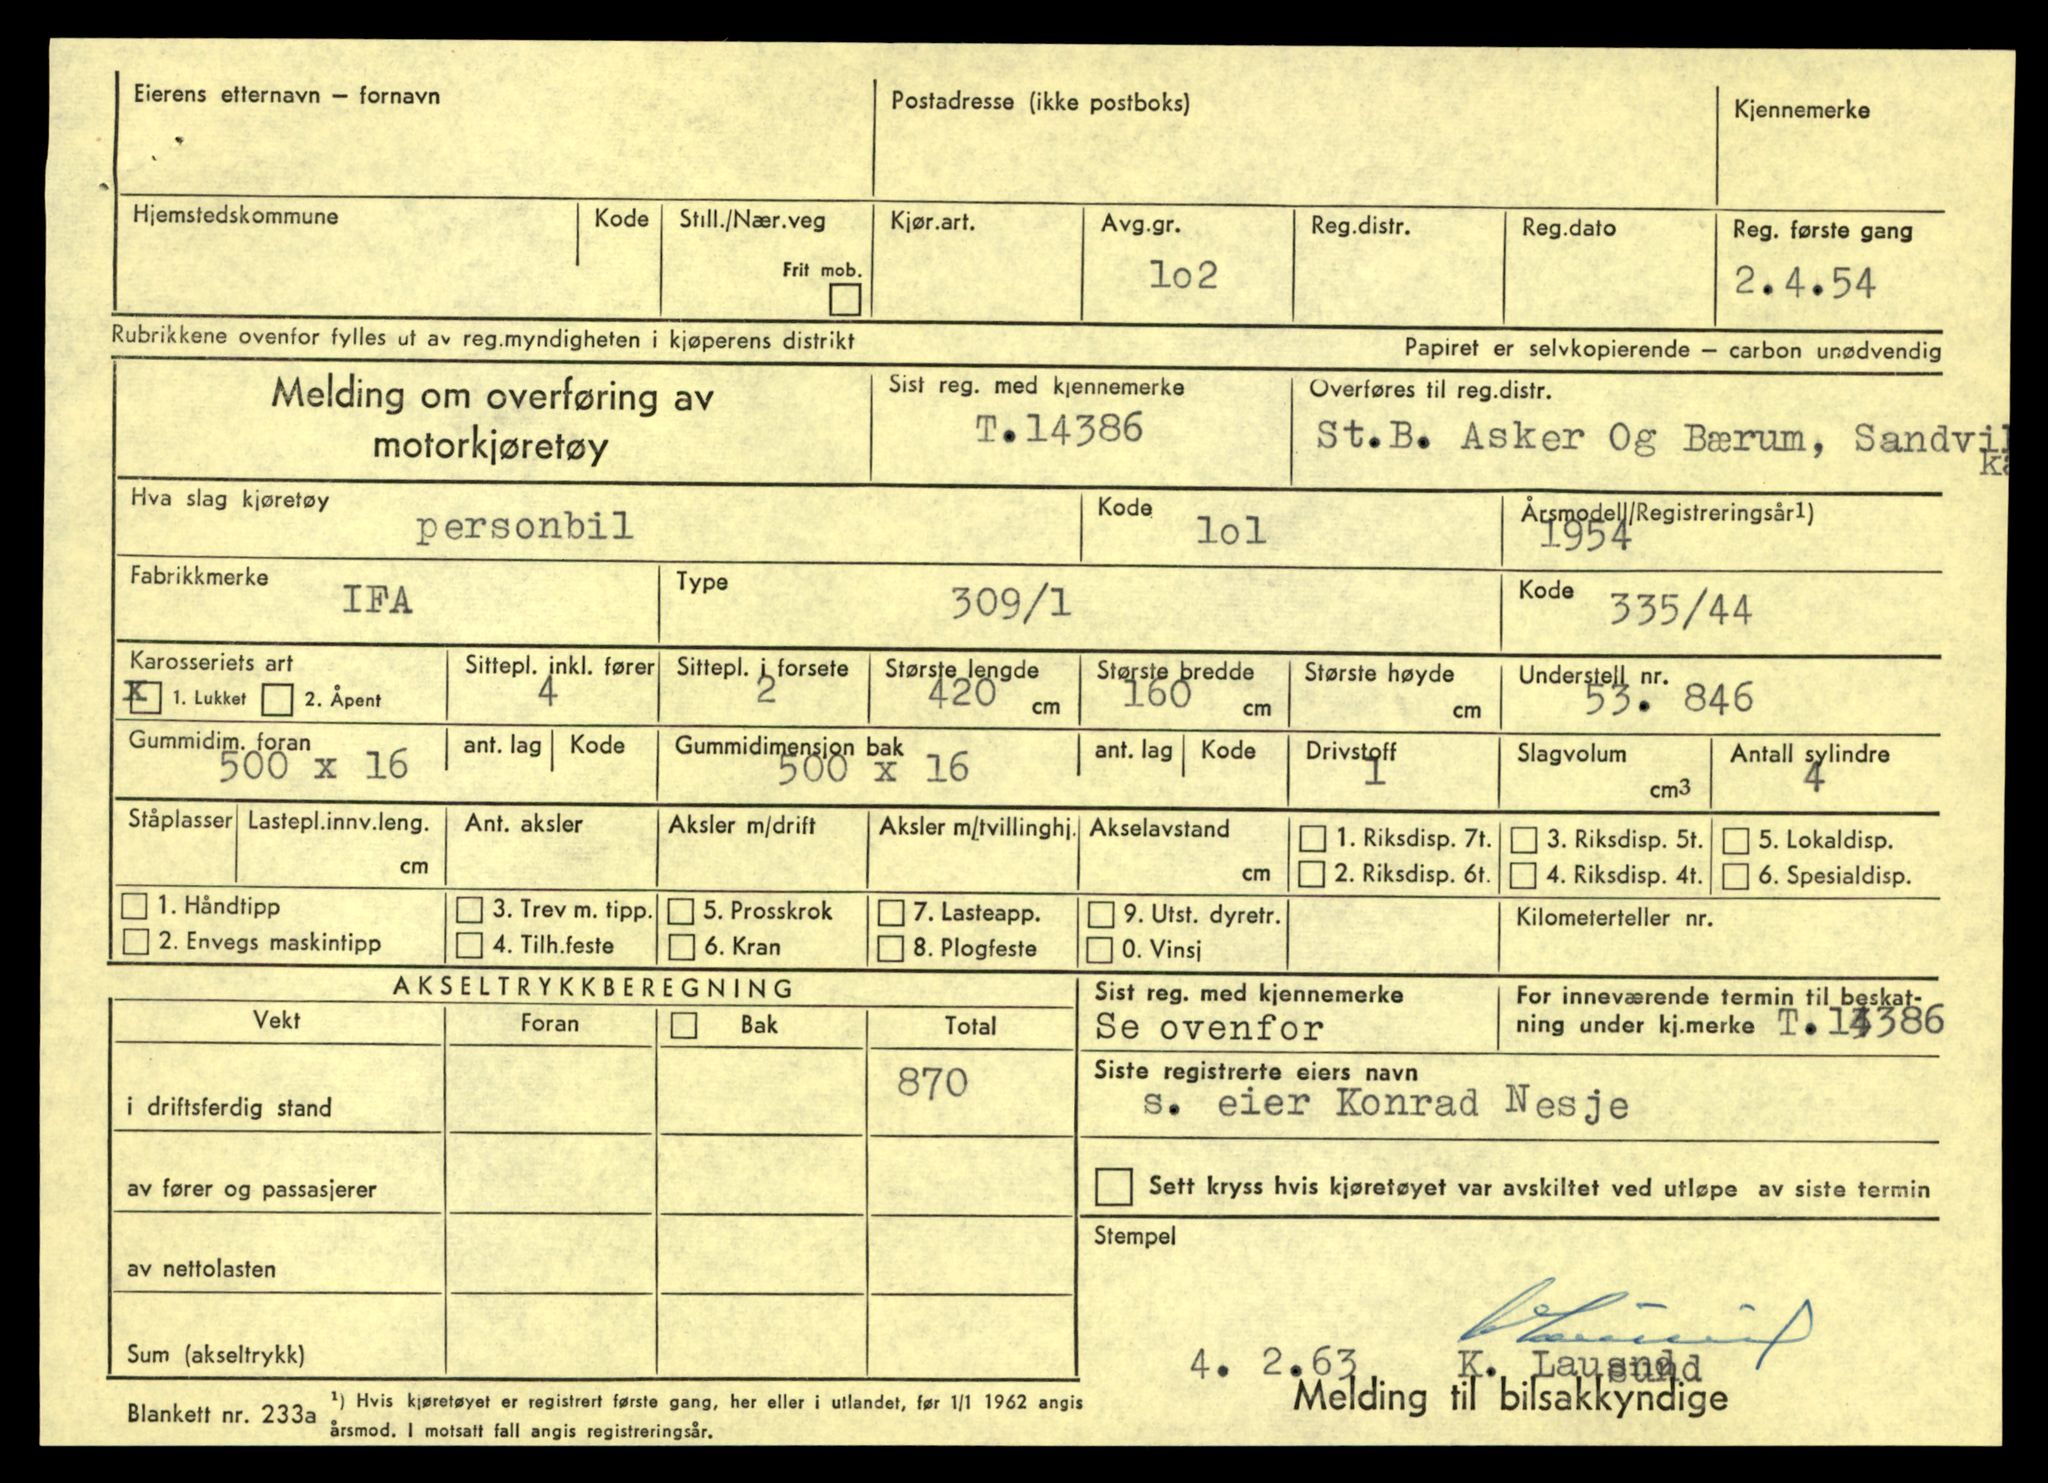 Eierens etternavn – fornavn
Postadresse (ikke postboks)
Kjennemerke
Hjemstedskommune
Kode
Still./Nær.veg
Frit mob.
Kjør.art.
Avg.gr.
lo2
Reg.distr.
Reg.dato
Reg. første gang
2.4.54
Rubrikkene ovenfor fylles ut av reg.myndigheten i kjøperens distrikt
Papiret er selvkopierende – carbon unødvendig
Melding om overføring av
motorkjøretøy
Sist reg. med kjennemerke
T.14386
Overføres til reg.distr.
St.B. Asker Og Bærum, Sandvik
ka
Hva slag kjøretøy
personbil
Kode
lol
Årsmodell/Registreringsår1)
1954
Fabrikkmerke
IFA
Type
309/1
Kode
335/44
Karosseriets art
x 1. Lukket 2. Åpent
Sittepl. inkl. fører
4
Sittepl. i forsete
2
Største lengde
420 cm
Største bredde
160 cm
Største høyde
cm
Understell nr.
53. 846
Gummidim. foran
500 x 16
ant. lag
Kode
Gummidimensjon bak
500 x 16
ant. lag
Kode
Drivstoff
1
Slagvolum
cm3
Antall sylindre
4
Ståplasser
Lastepl.innv.leng.
cm
Ant. aksler
Aksler m/drift
Aksler m/tvillinghj.
Akselavstand
cm
1. Riksdisp. 7t.
2. Riksdisp. 6t.
3. Riksdisp. 5t.
4. Riksdisp. 4t.
5. Lokaldisp.
6. Spesialdisp.
1. Håndtipp
2. Envegs maskintipp
3. Trev m. tipp.
4. Tilh.feste
5. Prosskrok
6. Kran
7. Lasteapp.
8. Plogfeste
9. Utst. dyretr.
0. Vinsj
Kilometerteller nr.
AKSELTRYKKBEREGNING
Vekt
Foran
Bak
Total
i driftsferdig stand
870
av fører og passasjerer
av nettolasten
Sum (akseltrykk)
Sist reg. med kjennemerke
Se ovenfor
For inneværende termin til beskat-
ning under kj.merke T.14386
Siste registrerte eiers navn
s. eier Konrad Nesje
Sett kryss hvis kjøretøyet var avskiltet ved utløpe av siste termin
Stempel
4. 2.63 K. Lausund
Melding til bilsakkyndige
Blankett nr. 233a
1) Hvis kjøretøyet er registrert første gang, her eller i utlandet, før 1/1 1962 angis
årsmod. I motsatt fall angis registreringsår.